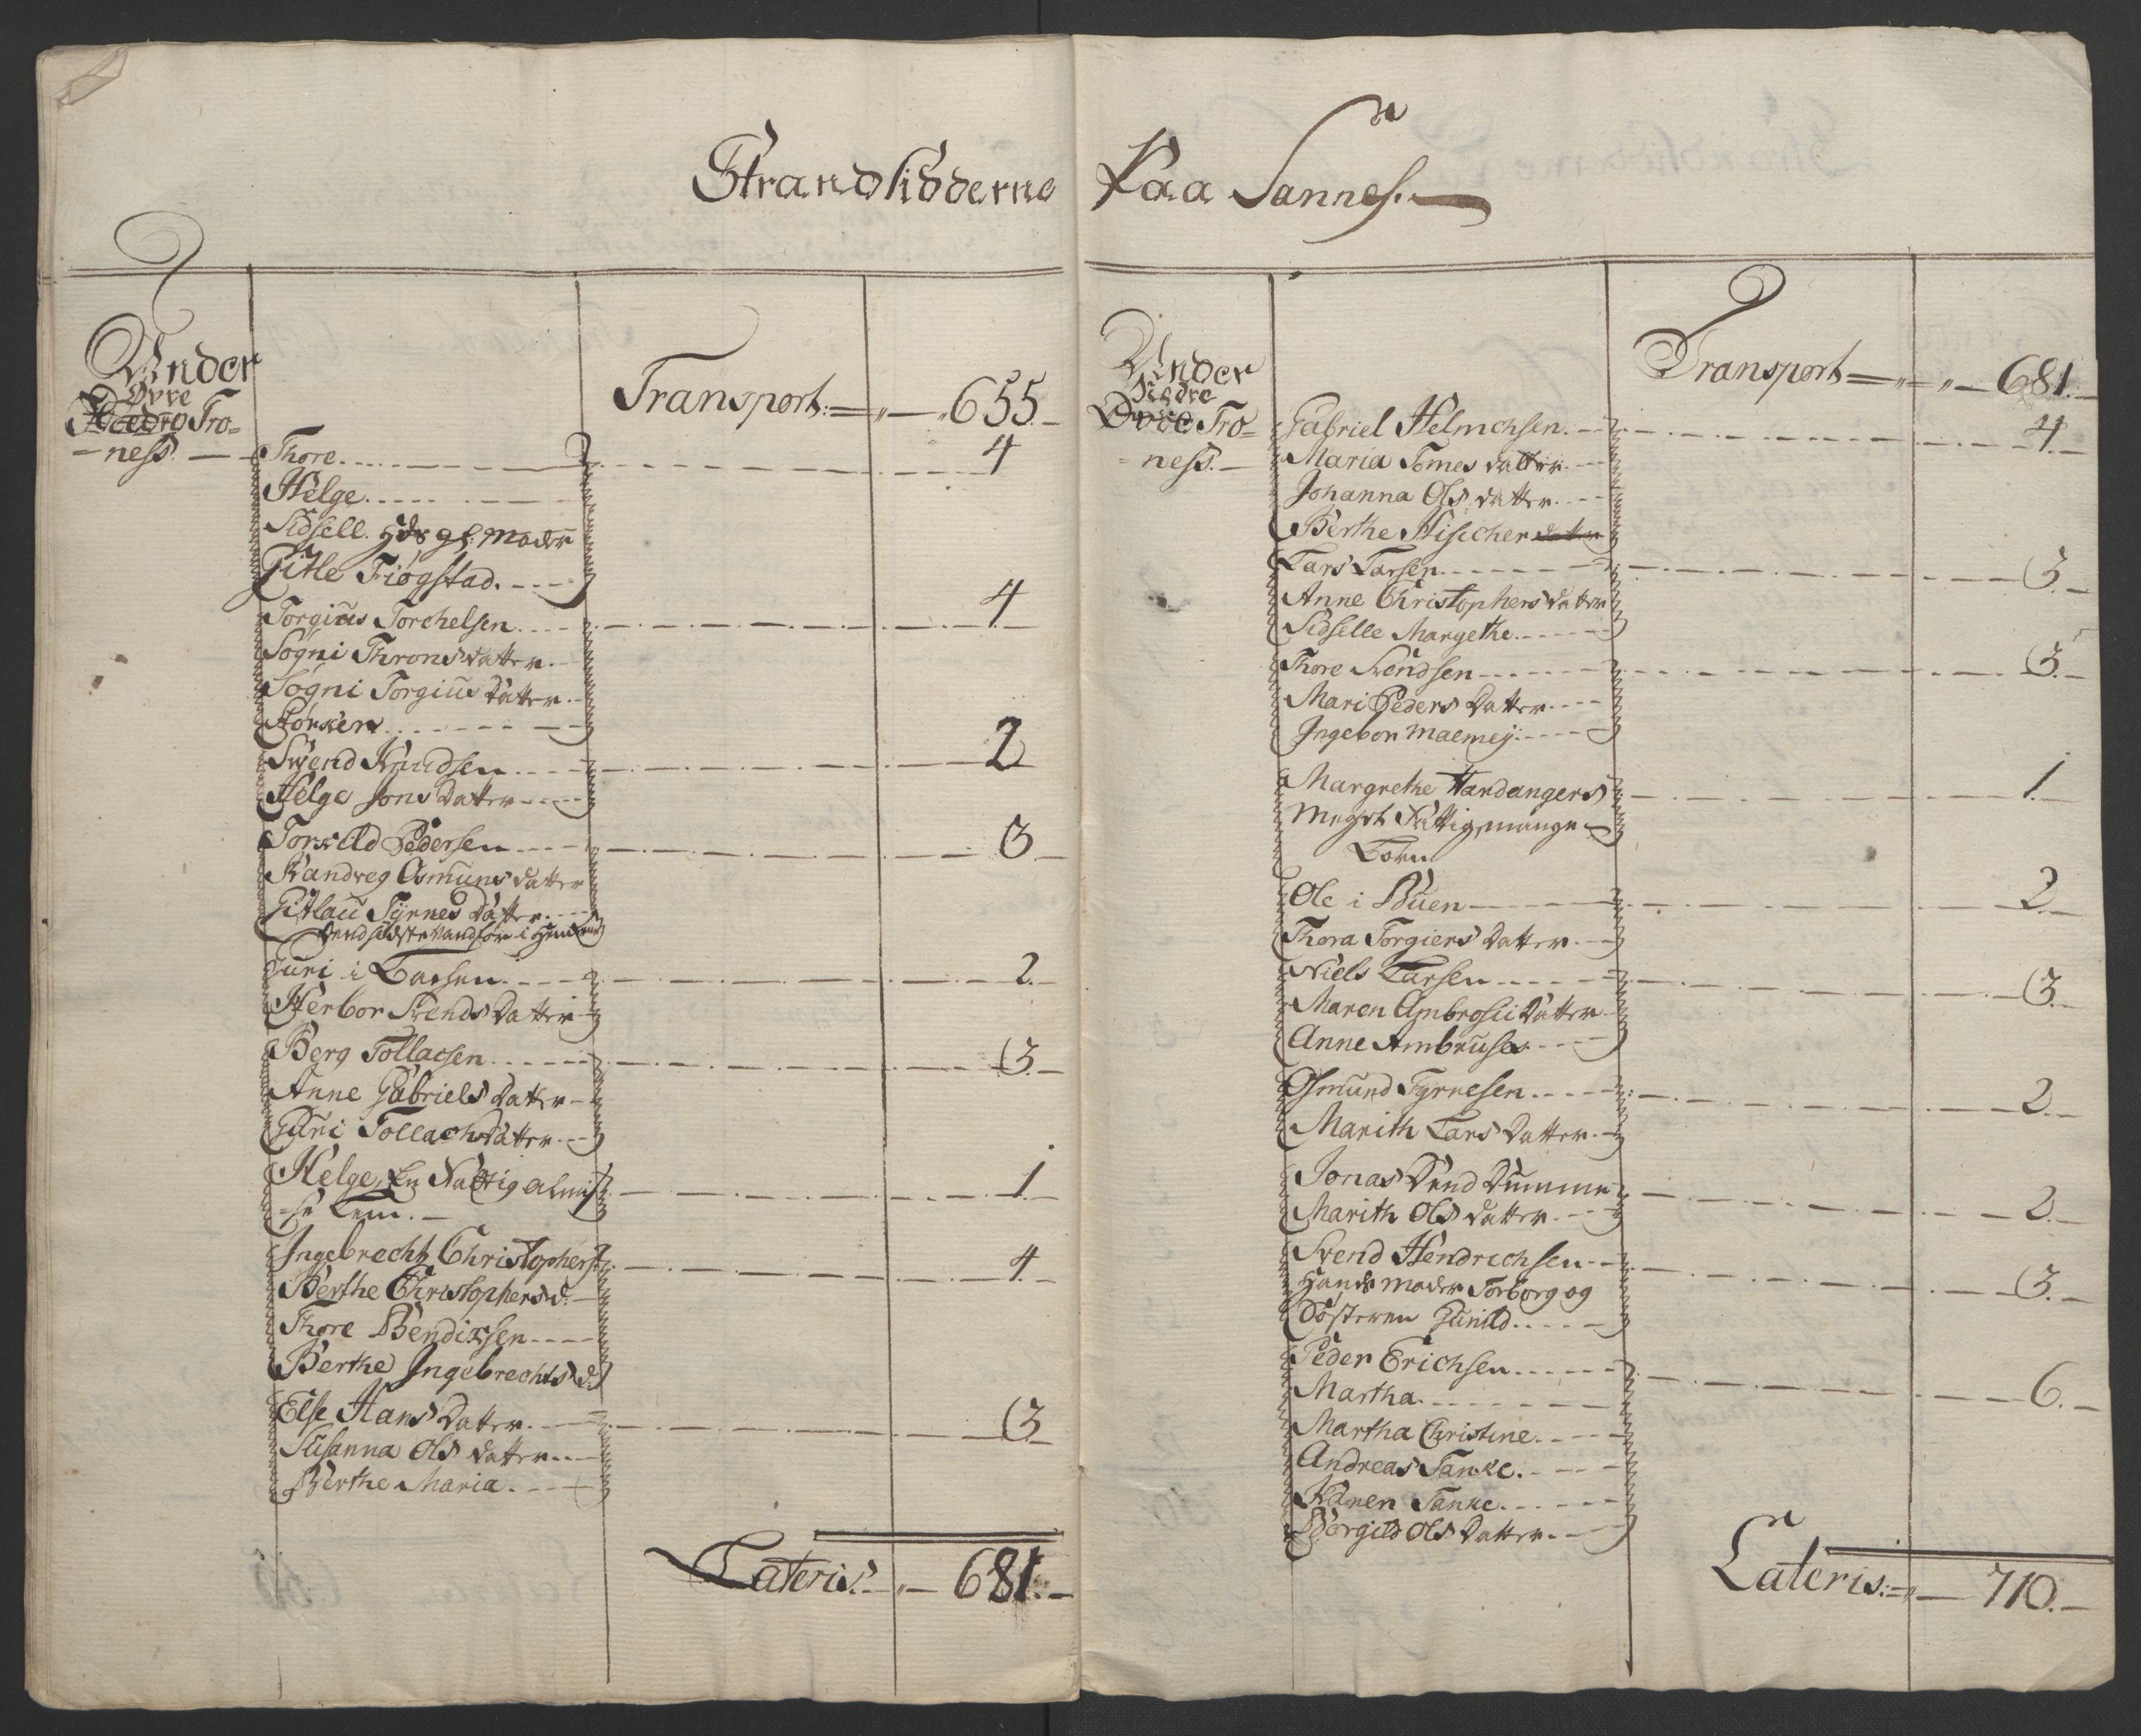 Strandsidderne Paa Sannes.
Under
Øvre
Tro=
=ness.
Transport: 655.
Thore 4
Helge
Sidsell. Hds gl: Moder
Gitle Fiogstad.
Torgius Torchelsen 4
Sogni Throns datter.
Sogni Torgius Datter
Svend Knudsen 2
Helge Jons Datter
Torkild Pedersen 3
Randveg Osmuns datter
Gitlau Tyrnes Datter
Guri i 2.
Herbor Svends Datter
Berg Tollacsen 3.
Anne Gabriels Datter
Guri Tollachs Datter
Helge, En Nøttig almis= 1.
=se Lem.
Ingebrecht Christophers: 4.
Berthe Christophersd.
Thore Bendixsen
Berthe Ingebrechts d.
Else Hans Datter 3.
Susanna Ols datter
Berthe Maria.
Lateris. 681.
Under
Nedre
Øvre Tro=
=ness.
Transport 681.
Gabriel Helmchsen. 4.
Maria Tomes datter.
Johanna Ols datter.
Berthe Hischer datter
Lars Larsen 3.
Anne Christophers datter
Sidselle Margethe.
Thore Svendsen 3.
Mari Peders Datter
Ingebor Maemeij.
Margrethe Hardangers 1.
Meget Nøttig, mange
Børn
Ole i Buen 2.
Thora Torgiers Datter.
Niels Larsen 3.
Maren Ambrosii Datter
Anne Ambruses
Osmund Tyrnesen 2.
Marith Lars Datter.
Jonas Dend Dumme 2.
Marith Ols datter.
Svend Hendrichsen 3.
Hands Moder Torborg og
Søsteren Gunild
Peder Erichsen 6.
Martha.
Martha Christine.
Andreas Tanke.
Karen Tanke.
Borgild Ols Datter.
Lateris: 710.